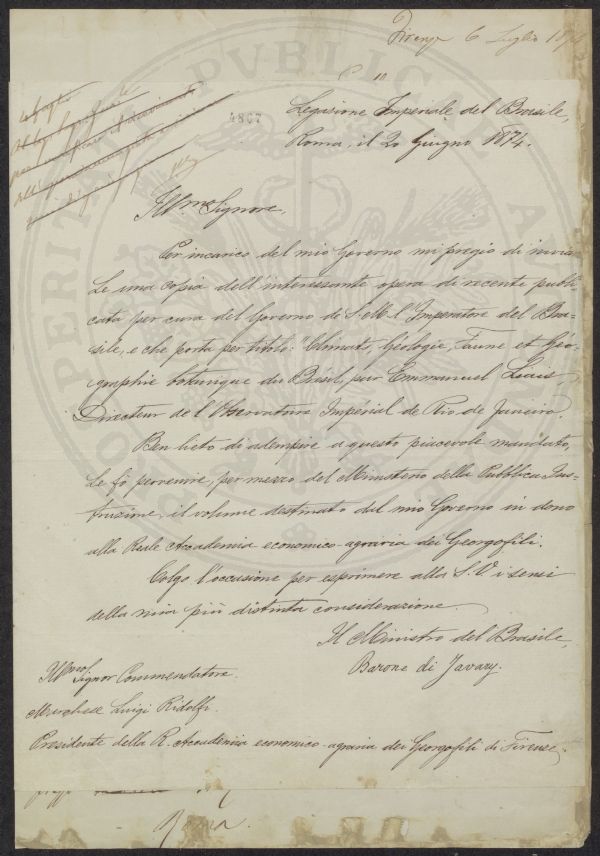 Firenze 6 Luglio 1874
4867
Legazione Imperiale del Brasile,
Roma, il 20 Giugno 1874.
Ill.mo Signore,
Per incarico del mio Governo mi pregio di invia
Le una copia dell'interessante opera di recente publi-
cata per cura del Governo di S. M. l'Imperatore del Bra-
sile, e che porta per titolo: "Climats, Géologie, Faune et Géo-
graphie botanique du Brésil, par Emmanuel Liais,
Directeur de l'Observatoire Impérial de Rio de Janeiro.
Ben lieto di adempire a questo piacevole mandato,
Le fò pervenire, per mezzo del Ministero della Pubblica Ins-
truzione, il volume destinato dal mio Governo in dono
alla Reale Accademia economico-agraria dei Georgofili.
Colgo l'occasione per esprimere alla S. V. i sensi
della mia più distinta considerazione.
Il Ministro del Brasile,
Barone di Javary.
Ill.mo Signor Commendatore
Marchese Luigi Ridolfi
Presidente della R. Accademia economico-agraria dei Georgofili di Firenze.
Roma